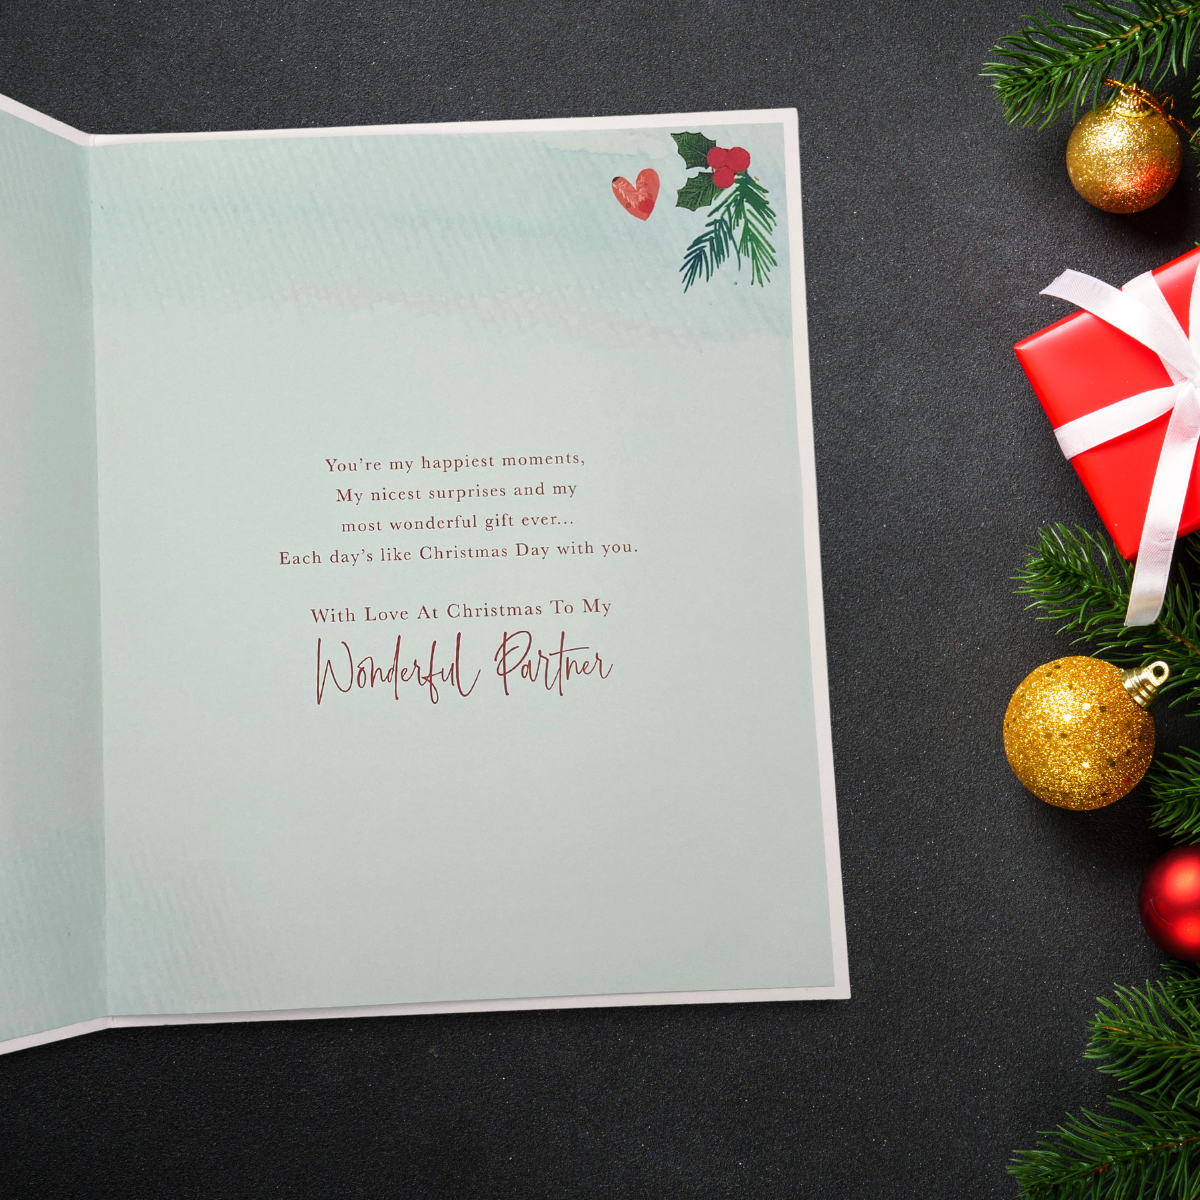 You're my happiest moments,
My nicest surprises and my
most wonderful gift ever...
Each day's like Christmas Day with you.
With Love At Christmas To My
Wonderful Partner